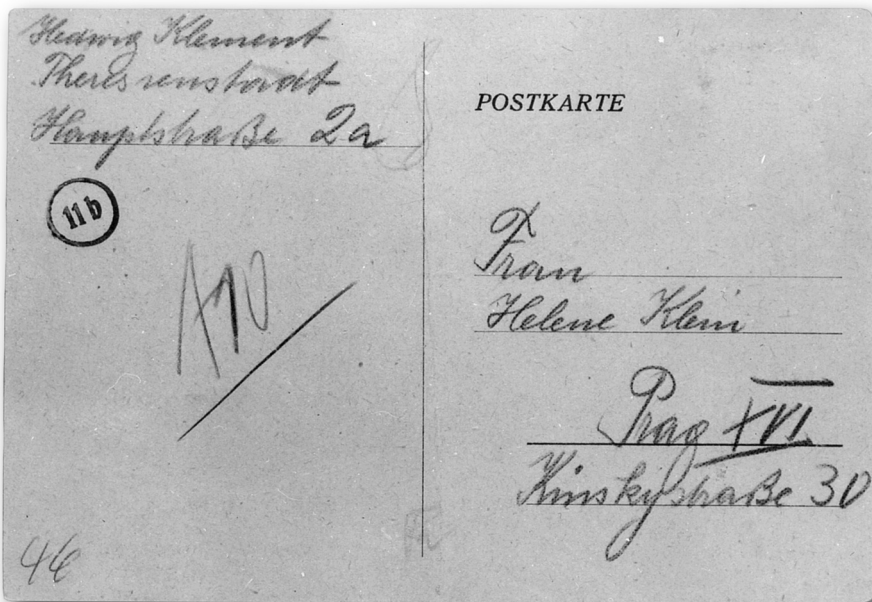 Hedwig Klement
Theresienstadt
Hauptstraße 2a
11b
A10
46
POSTKARTE
Frau
Helene Klein
Prag XVI
Kinskystraße 30